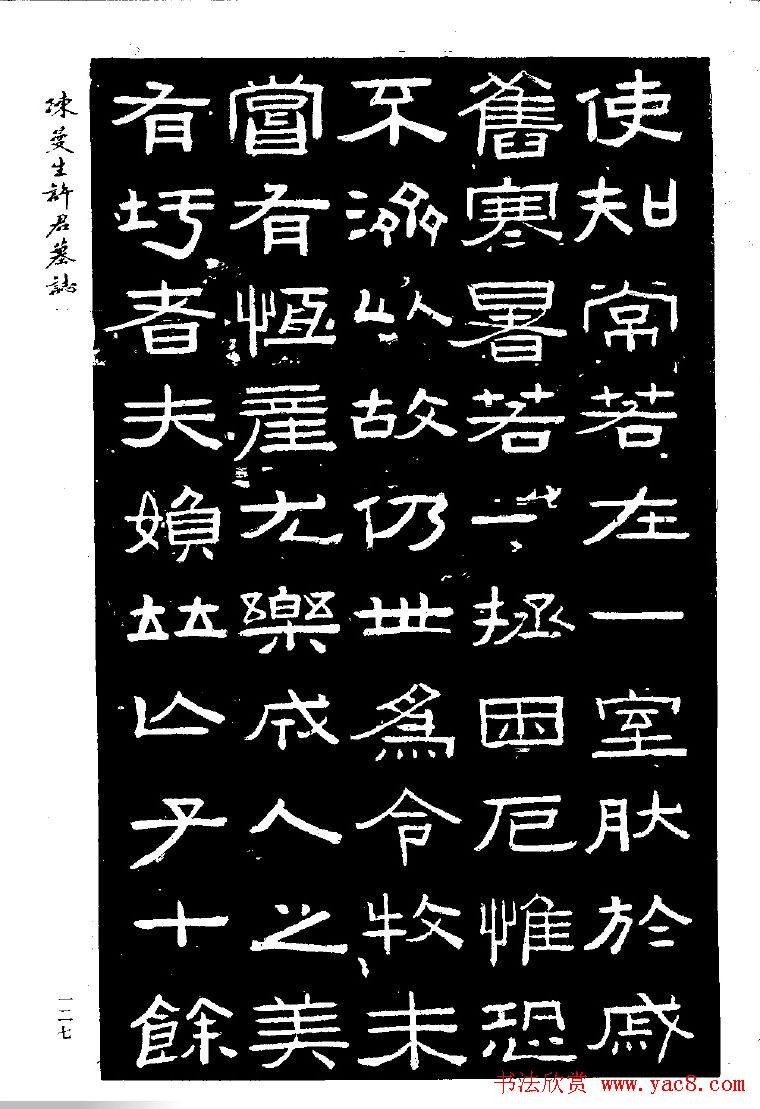 使知常若在一室肰於戚
舊寒暑若一拯困厄惟恐
不以故仍世爲令牧未
嘗有恆產尤樂成人之美
有圬者夫媍竝亾子十餘
陳曼生許君墓誌
一二七
书法欣赏 www.yac8.com